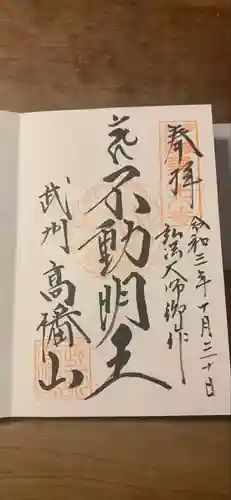 奉拝
令和三年十月二十日
弘法大師御作
不動明王
武州
高山